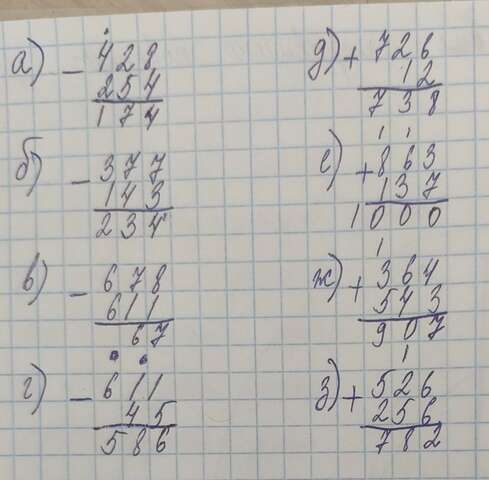 а) − 428
254
174
б) − 377
143
234
в) − 678
611
67
г) − 611
45
586
д) + 726
12
738
1 1
е) + 863
137
1000
1
ж) + 364
543
907
1
з) + 526
256
782